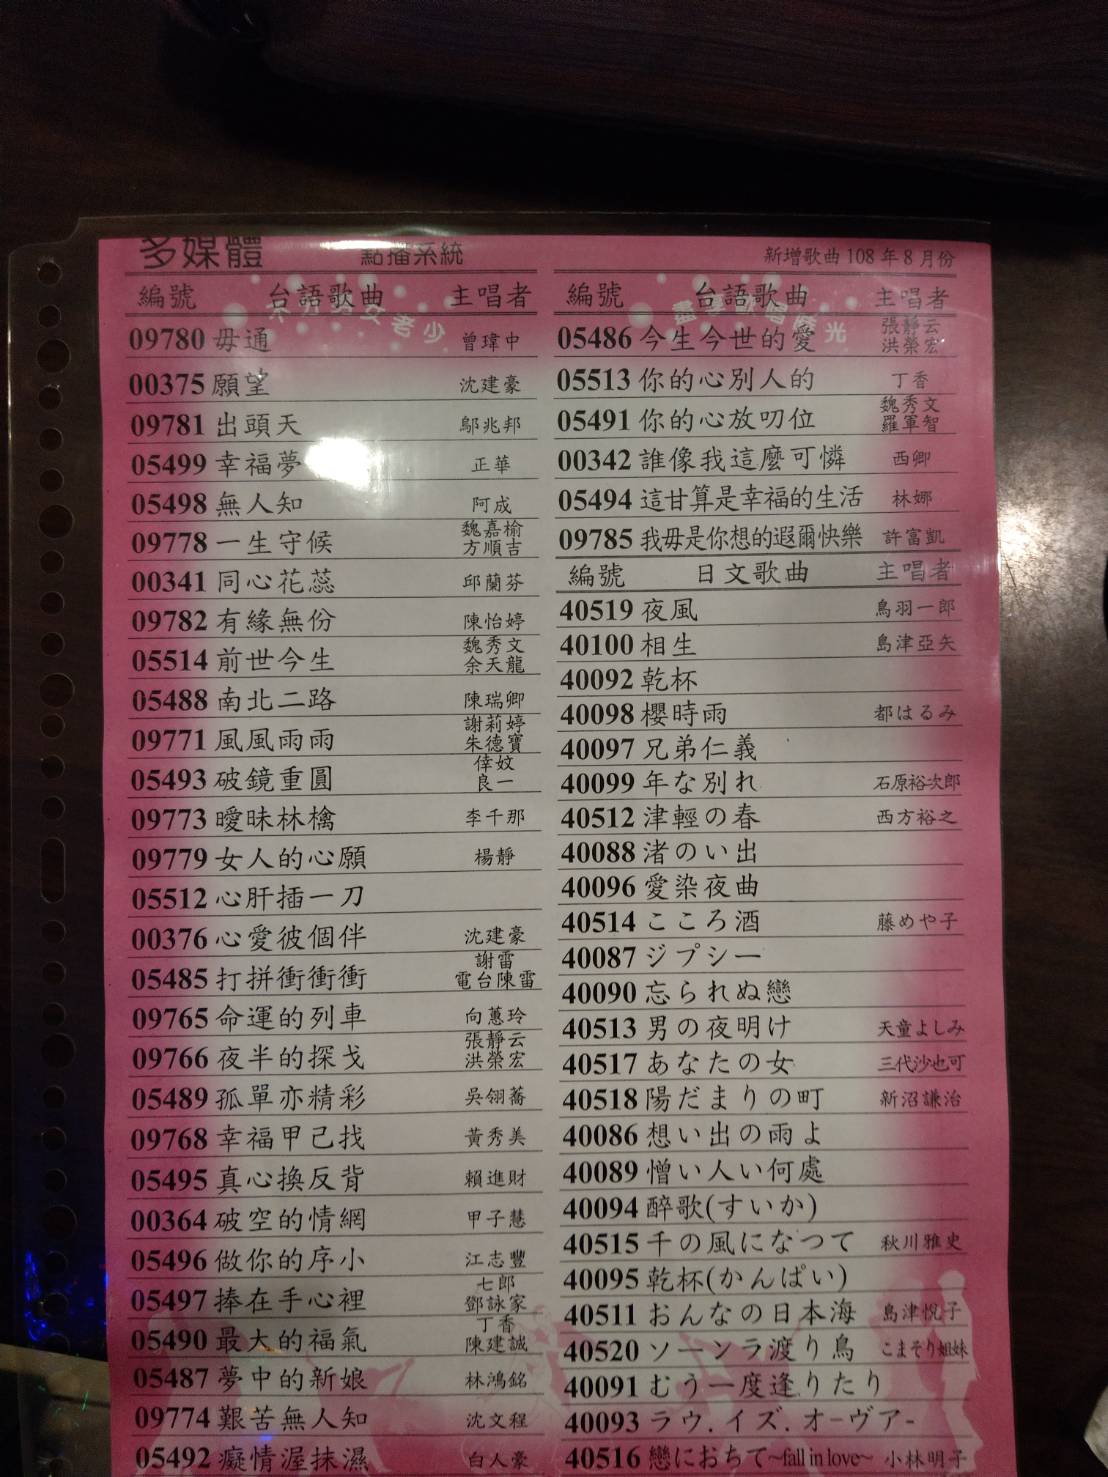 多媒體 點播系統
編號 台語歌曲 主唱者
09780 毋通 曾瑋中
00375 願望 沈建豪
09781 出頭天 鄔兆邦
05499 幸福夢 正華
05498 無人知 阿成
09778 一生守候 魏嘉榆 方順吉
00341 同心花蕊 邱蘭芬
09782 有緣無份 陳怡婷
05514 前世今生 魏秀文 余天龍
05488 南北二路 陳瑞卿
09771 風風雨雨 謝莉婷 朱德寶
05493 破鏡重圓 倖妏 良一
09773 曖昧林檎 李千那
09779 女人的心願 楊靜
05512 心肝插一刀
00376 心愛彼個伴 沈建豪
05485 打拼衝衝衝 謝雷 電台陳雷
09765 命運的列車 向蕙玲
09766 夜半的探戈 張靜云 洪榮宏
05489 孤單亦精彩 吳翎蕎
09768 幸福甲己找 黃秀美
05495 真心換反背 賴進財
00364 破空的情網 甲子慧
05496 做你的序小 江志豐
05497 捧在手心裡 七郎 鄧詠家
05490 最大的福氣 丁香 陳建誠
05487 夢中的新娘 林鴻銘
09774 艱苦無人知 沈文程
05492 癡情渥抹濕 白人豪
新增歌曲 108 年 8 月份
編號 台語歌曲 主唱者
05486 今生今世的愛 張靜云 洪榮宏
05513 你的心別人的 丁香
05491 你的心放叨位 魏秀文 羅軍智
00342 誰像我這麼可憐 西卿
05494 這甘算是幸福的生活 林娜
09785 我毋是你想的遐爾快樂 許富凱
編號 日文歌曲 主唱者
40519 夜風 鳥羽一郎
40100 相生 島津亞矢
40092 乾杯
40098 櫻時雨 都はるみ
40097 兄弟仁義
40099 年な別れ 石原裕次郎
40512 津輕の春 西方裕之
40088 渚のい出
40096 愛染夜曲
40514 こころ酒 藤めや子
40087 ジプシー
40090 忘られぬ戀
40513 男の夜明け 天童よしみ
40517 あなたの女 三代沙也可
40518 陽だまりの町 新沼謙治
40086 想い出の雨よ
40089 憎い人い何處
40094 醉歌(すいか)
40515 千の風になつて 秋川雅史
40095 乾杯(かんぱい)
40511 おんなの日本海 島津悅子
40520 ソーンラ渡り鳥 こまそり姐妹
40091 むう一度逢りたり
40093 ラウ.イズ.オーヴァー
40516 戀におちて~fall in love~ 小林明子